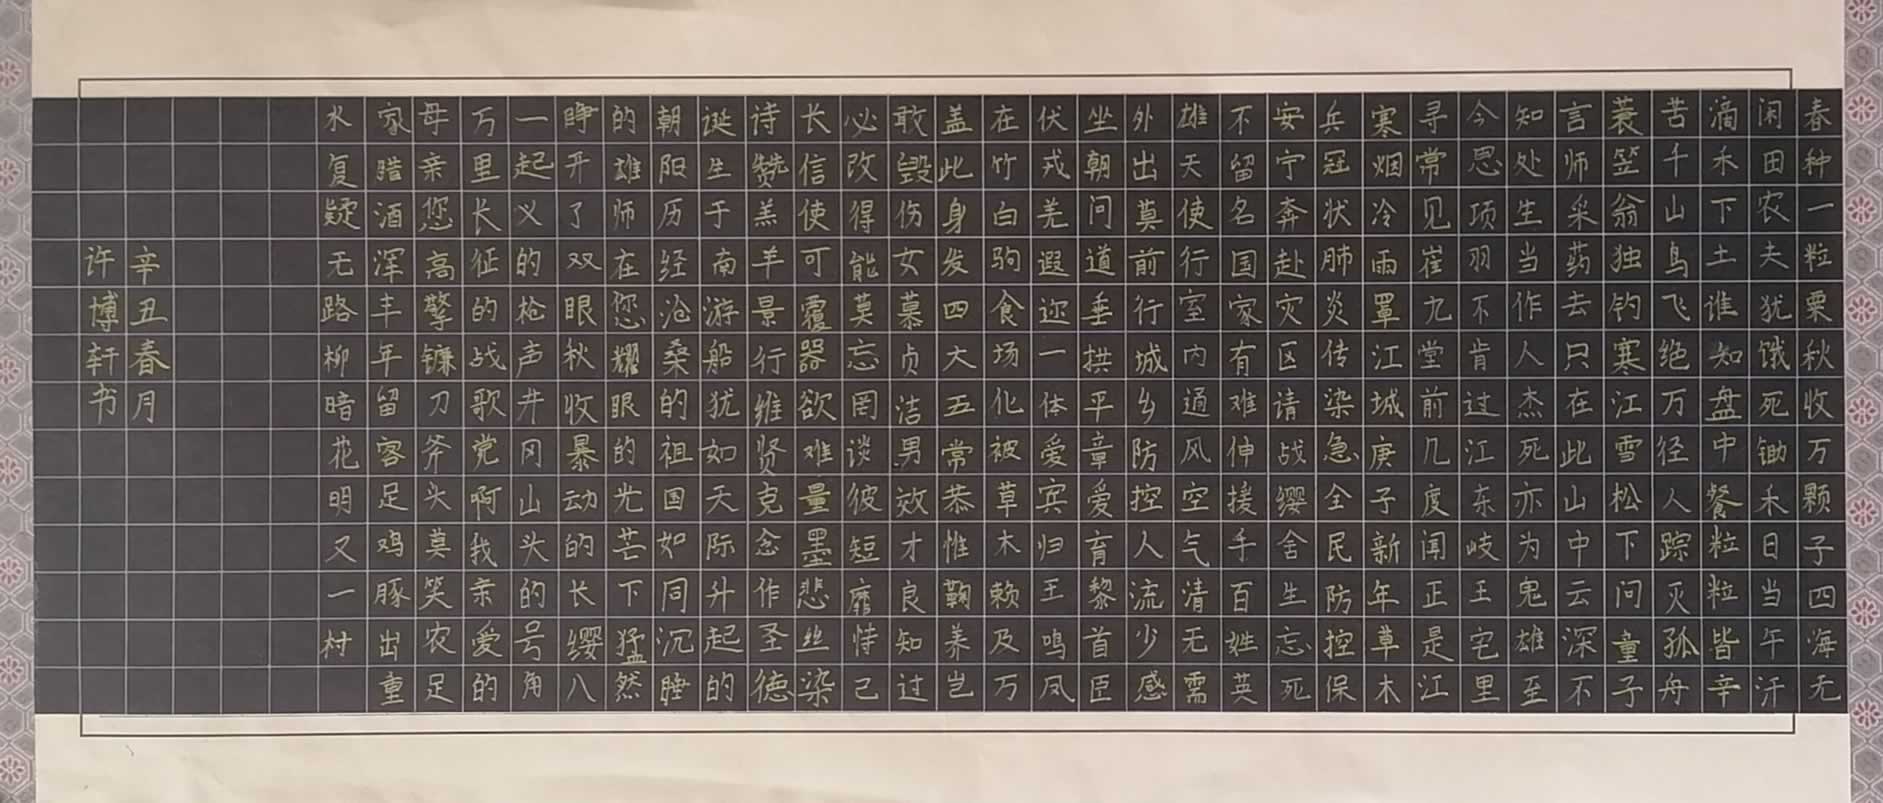 春种一粒粟秋收万颗子四海无
闲田农夫犹饿死锄禾日当午汗
滴禾下土谁知盘中餐粒粒皆辛
苦千山鸟飞绝万径人踪灭孤舟
蓑笠翁独钓寒江雪松下问童子
言师采药去只在此山中云深不
知处生当作人杰死亦为鬼雄至
今思项羽不肯过江东岐王宅里
寻常见崔九堂前几度闻正是江
寒烟冷雨罩江城庚子新年草木
兵冠状肺炎传染急全民防控保
安宁奔赴灾区请战缨舍生忘死
不留名国家有难伸援手百姓英
雄天使行室内通风空气清无需
外出莫前行城乡防控人流少感
坐朝问道垂拱平章爱育黎首臣
伏戎羌遐迩一体爱宾归王鸣凤
在竹白驹食场化被草木赖及万
盖此身发四大五常恭惟鞠养岂
敢毁伤女慕贞洁男效才良知过
必改得能莫忘罔谈彼短靡恃己
长信使可覆器欲难量墨悲丝染
诗赞羔羊景行维贤克念作圣德
诞生于南游船犹如天际升起的
朝阳历经沧桑的祖国如同沉睡
的雄师在您耀眼的光芒下猛然
睁开了双眼秋收暴动的长缨八
一起义的枪声井冈山头的号角
万里长征的战歌党啊我亲爱的
母亲您高擎镰刀斧头莫笑农足
家腊酒浑丰年留客足鸡豚出重
水复疑无路柳暗花明又一村
辛丑春月
许博轩书